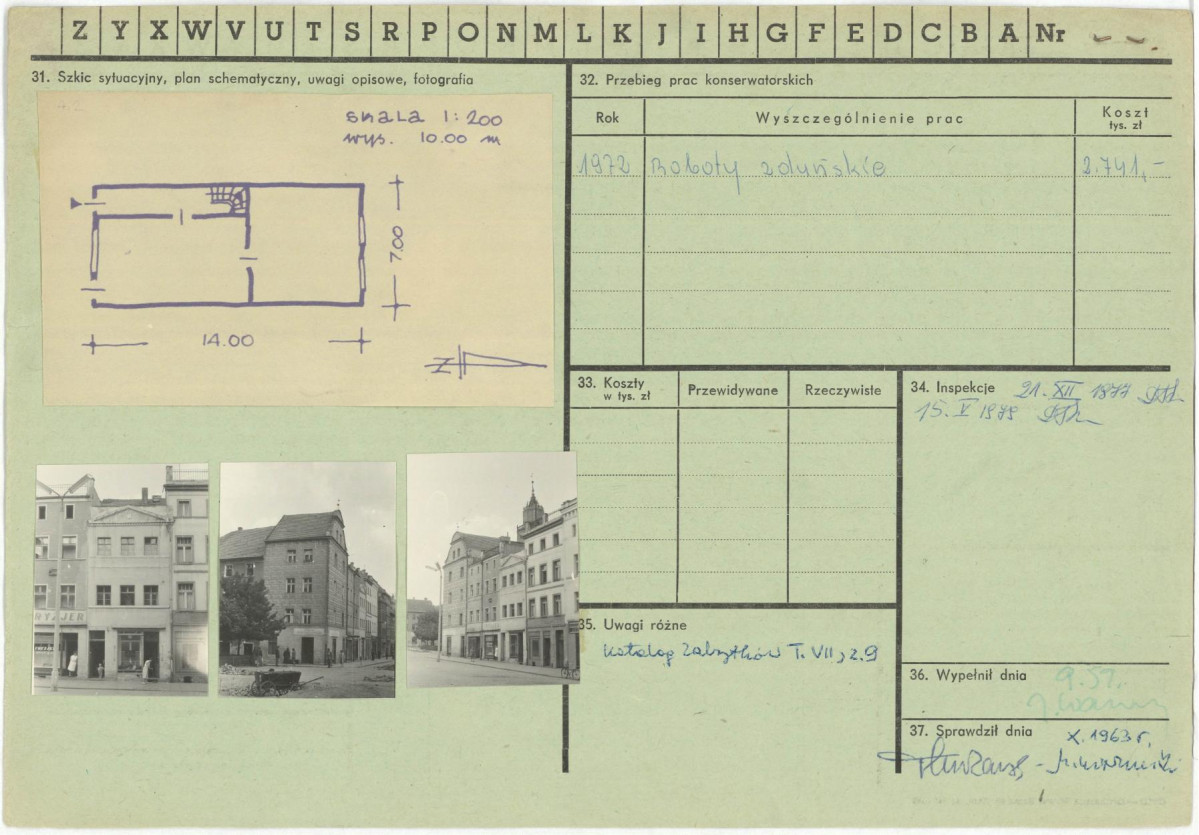 Z Y X W V U T S R P O N M L K J I H G F E D C B A Nr
31. Szkic sytuacyjny, plan schematyczny, uwagi opisowe, fotografia
skala 1:200
wys. 10.00 m
7.00
14.00
Z
RYZJER
32. Przebieg prac konserwatorskich
Rok Wyszczególnienie prac Koszt tys. zł
1972 Roboty zduńskie 2.741,-
33. Koszty w tys. zł Przewidywane Rzeczywiste
34. Inspekcje 21. XII 1977
15. V 1979
35. Uwagi różne
Katalog Zabytków T. VII, z. 9
36. Wypełnił dnia 9.57.
37. Sprawdził dnia X. 1963 r.